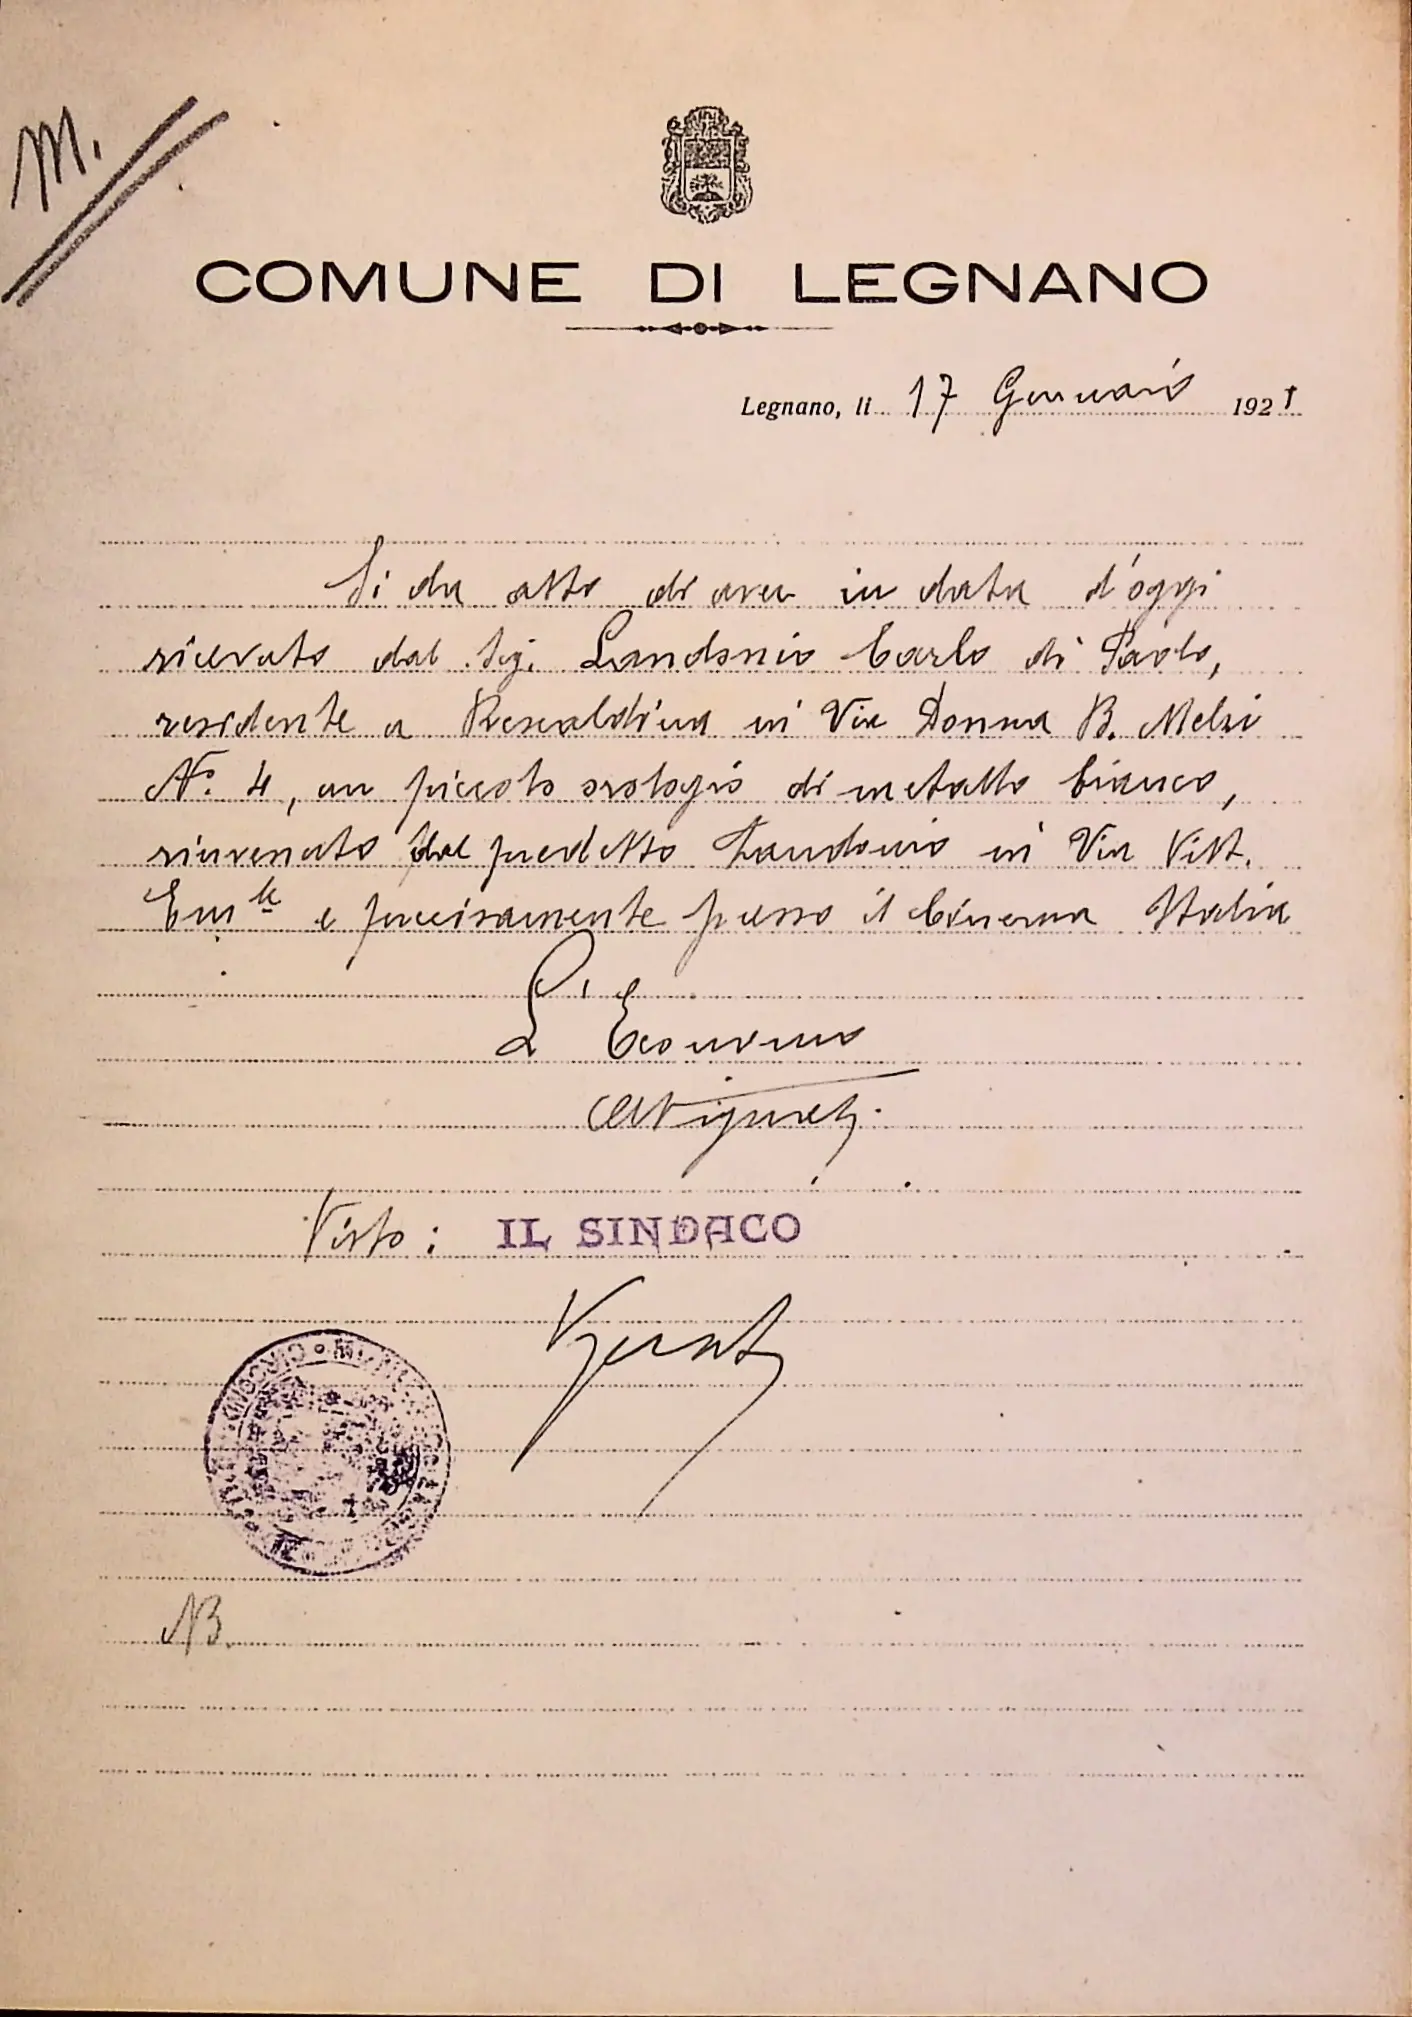 M.
COMUNE DI LEGNANO
Legnano, li 17 Gennaio 1921
Si da atto di aver in data d'oggi
ricevuto dal Sig. Landonio Carlo di Paolo,
residente a Rescaldina in Via Donna B. Melzi
N.º 4, un piccolo orologio di metallo bianco,
rinvenuto dal predetto Landonio in Via Vitt.
Em.le e precisamente presso il Cinema Italia
L'Economo
Visto: IL SINDACO
NB.